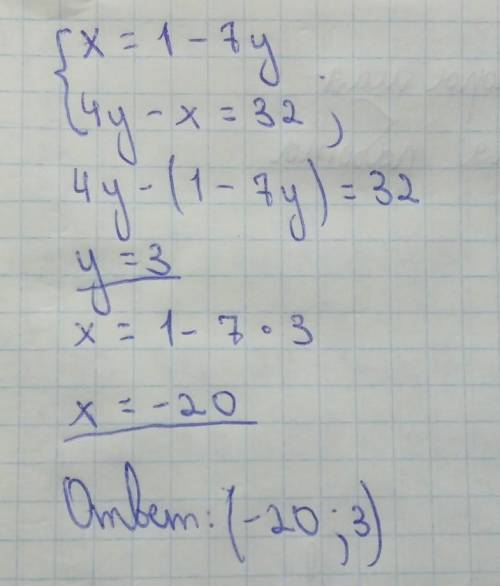 { x = 1 - 7y
4y - x = 32 ;
4y - (1 - 7y) = 32
y = 3
x = 1 - 7 · 3
x = -20
Ответ: (-20 ; 3)